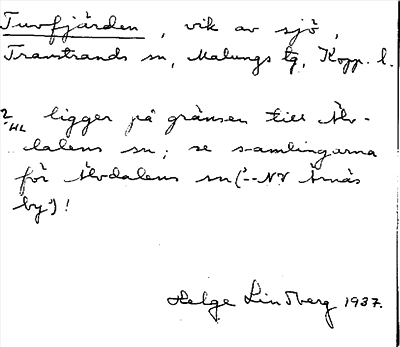 Tuvfjärden, vik av sjö,
Transtrands sn, Malungs tg, Kopp. l.
ligger på gränsen till Älv-
dalens sn; se samlingarna
för Älvdalens sn ("--NV Åsnäs
by")!
Helge Lindberg 1937.